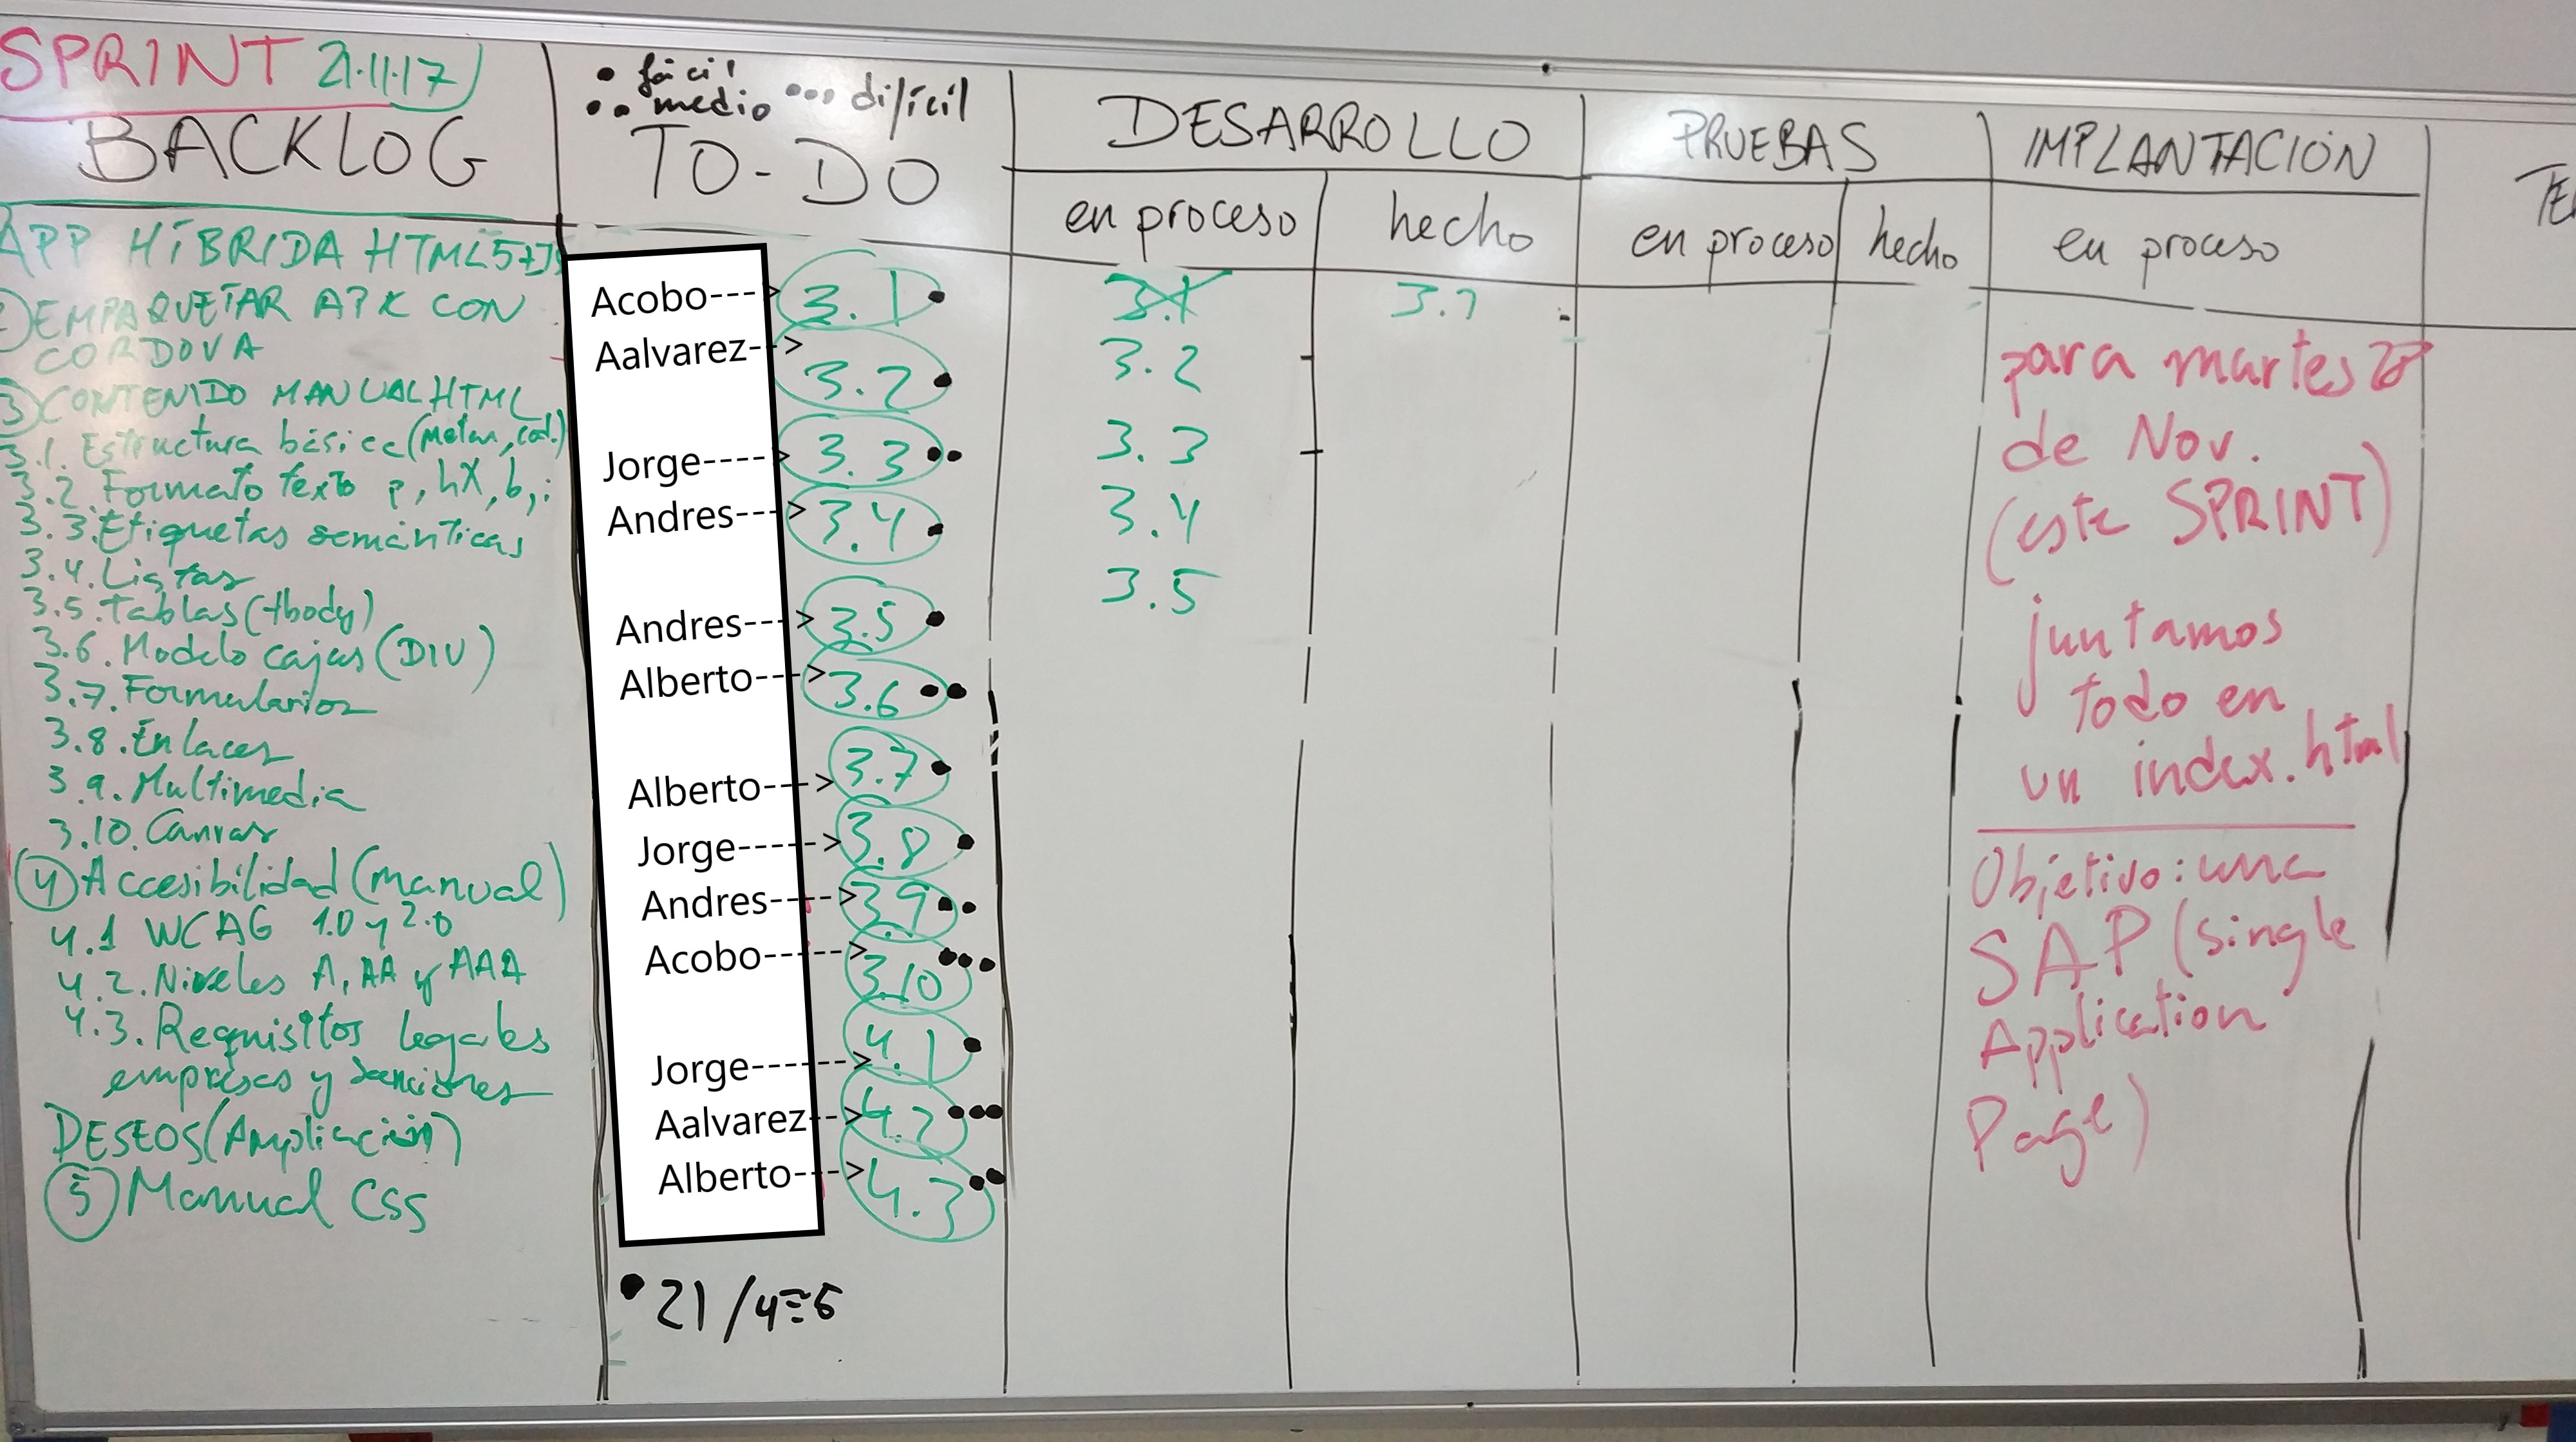 SPRINT 21.11.17
BACKLOG
APP HÍBRIDA HTML5+JS
2) EMPAQUETAR APK CON
CORDOVA
3) CONTENIDO MANUAL HTML
3.1. Estructura básica (metan, cod.)
3.2. Formato texto p, hX, b, i
3.3. Etiquetas semánticas
3.4. Listas
3.5. Tablas (tbody)
3.6. Modelo cajas (DIV)
3.7. Formularios
3.8. Enlaces
3.9. Multimedia
3.10. Canvas
4) Accesibilidad (manual)
4.1 WCAG 1.0 y 2.0
4.2. Niveles A, AA y AAA
4.3. Requisitos legales
empresas y sanciones
DESEOS (Ampliación)
5) Manual CSS
• fácil
•• medio ••• difícil
TO-DO
Acobo----> 3.1 •
Aalvarez--> 3.2 •
Jorge-----> 3.3 ••
Andres----> 3.4 •
Andres----> 3.5 •
Alberto----> 3.6 ••
Alberto----> 3.7 •
Jorge------> 3.8 •
Andres-----> 3.9 ••
Acobo------> 3.10 •••
Jorge-------> 4.1 •
Aalvarez---> 4.2 •••
Alberto----> 4.3 ••
• 21/4≡5
DESARROLLO
en proceso
3.1
3.2
3.3
3.4
3.5
hecho
3.1
PRUEBAS
en proceso
hecho
IMPLANTACIÓN
en proceso
para martes 28
de Nov.
(este SPRINT)
juntamos
todo en
un index.html
Objetivo: una
SAP (single
Application
Page)
TE